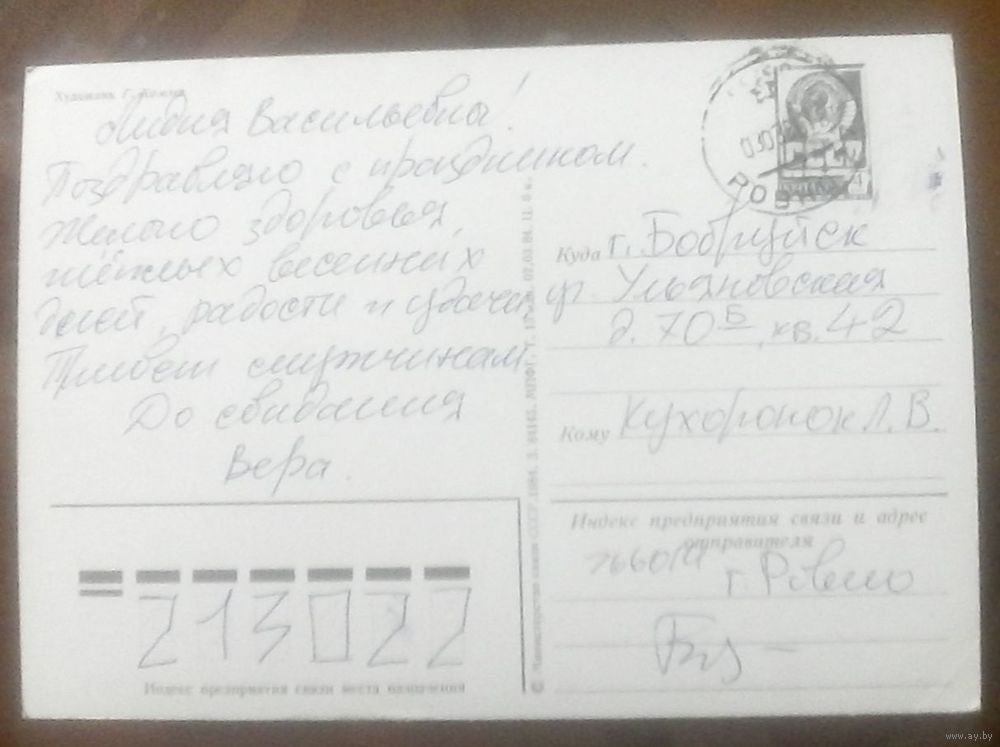 Художник Г.
Лидия Васильевна!
Поздравляю с праздником.
Желаю здоровья,
тёплых весенних
дней, радости и удачи
Привет мужчинам
До свидания
Вера.
СССР
Куда г. Бобруйск
ул. Ульяновская
д. 70 Б, кв. 42
Кому Кухоронок Л. В.
Индекс предприятия связи и адрес
отправителя
г. Ровно
213022
Индекс предприятия связи места назначения
© Министерство связи СССР. 1984. З. 84145. МПФГ.
www.ay.by